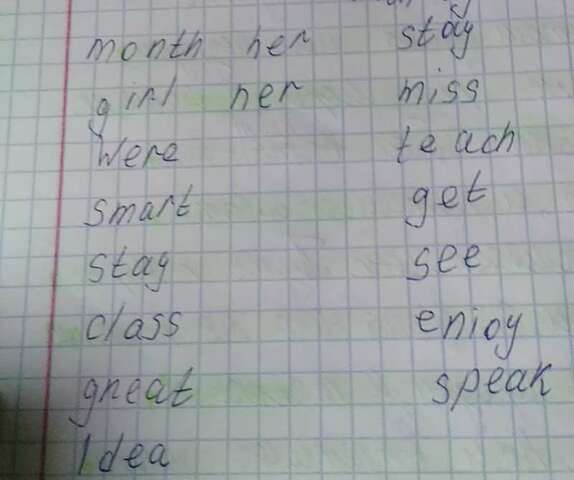 month her stay
girl her miss
Were teach
smart get
stay see
class enjoy
great speak
Idea